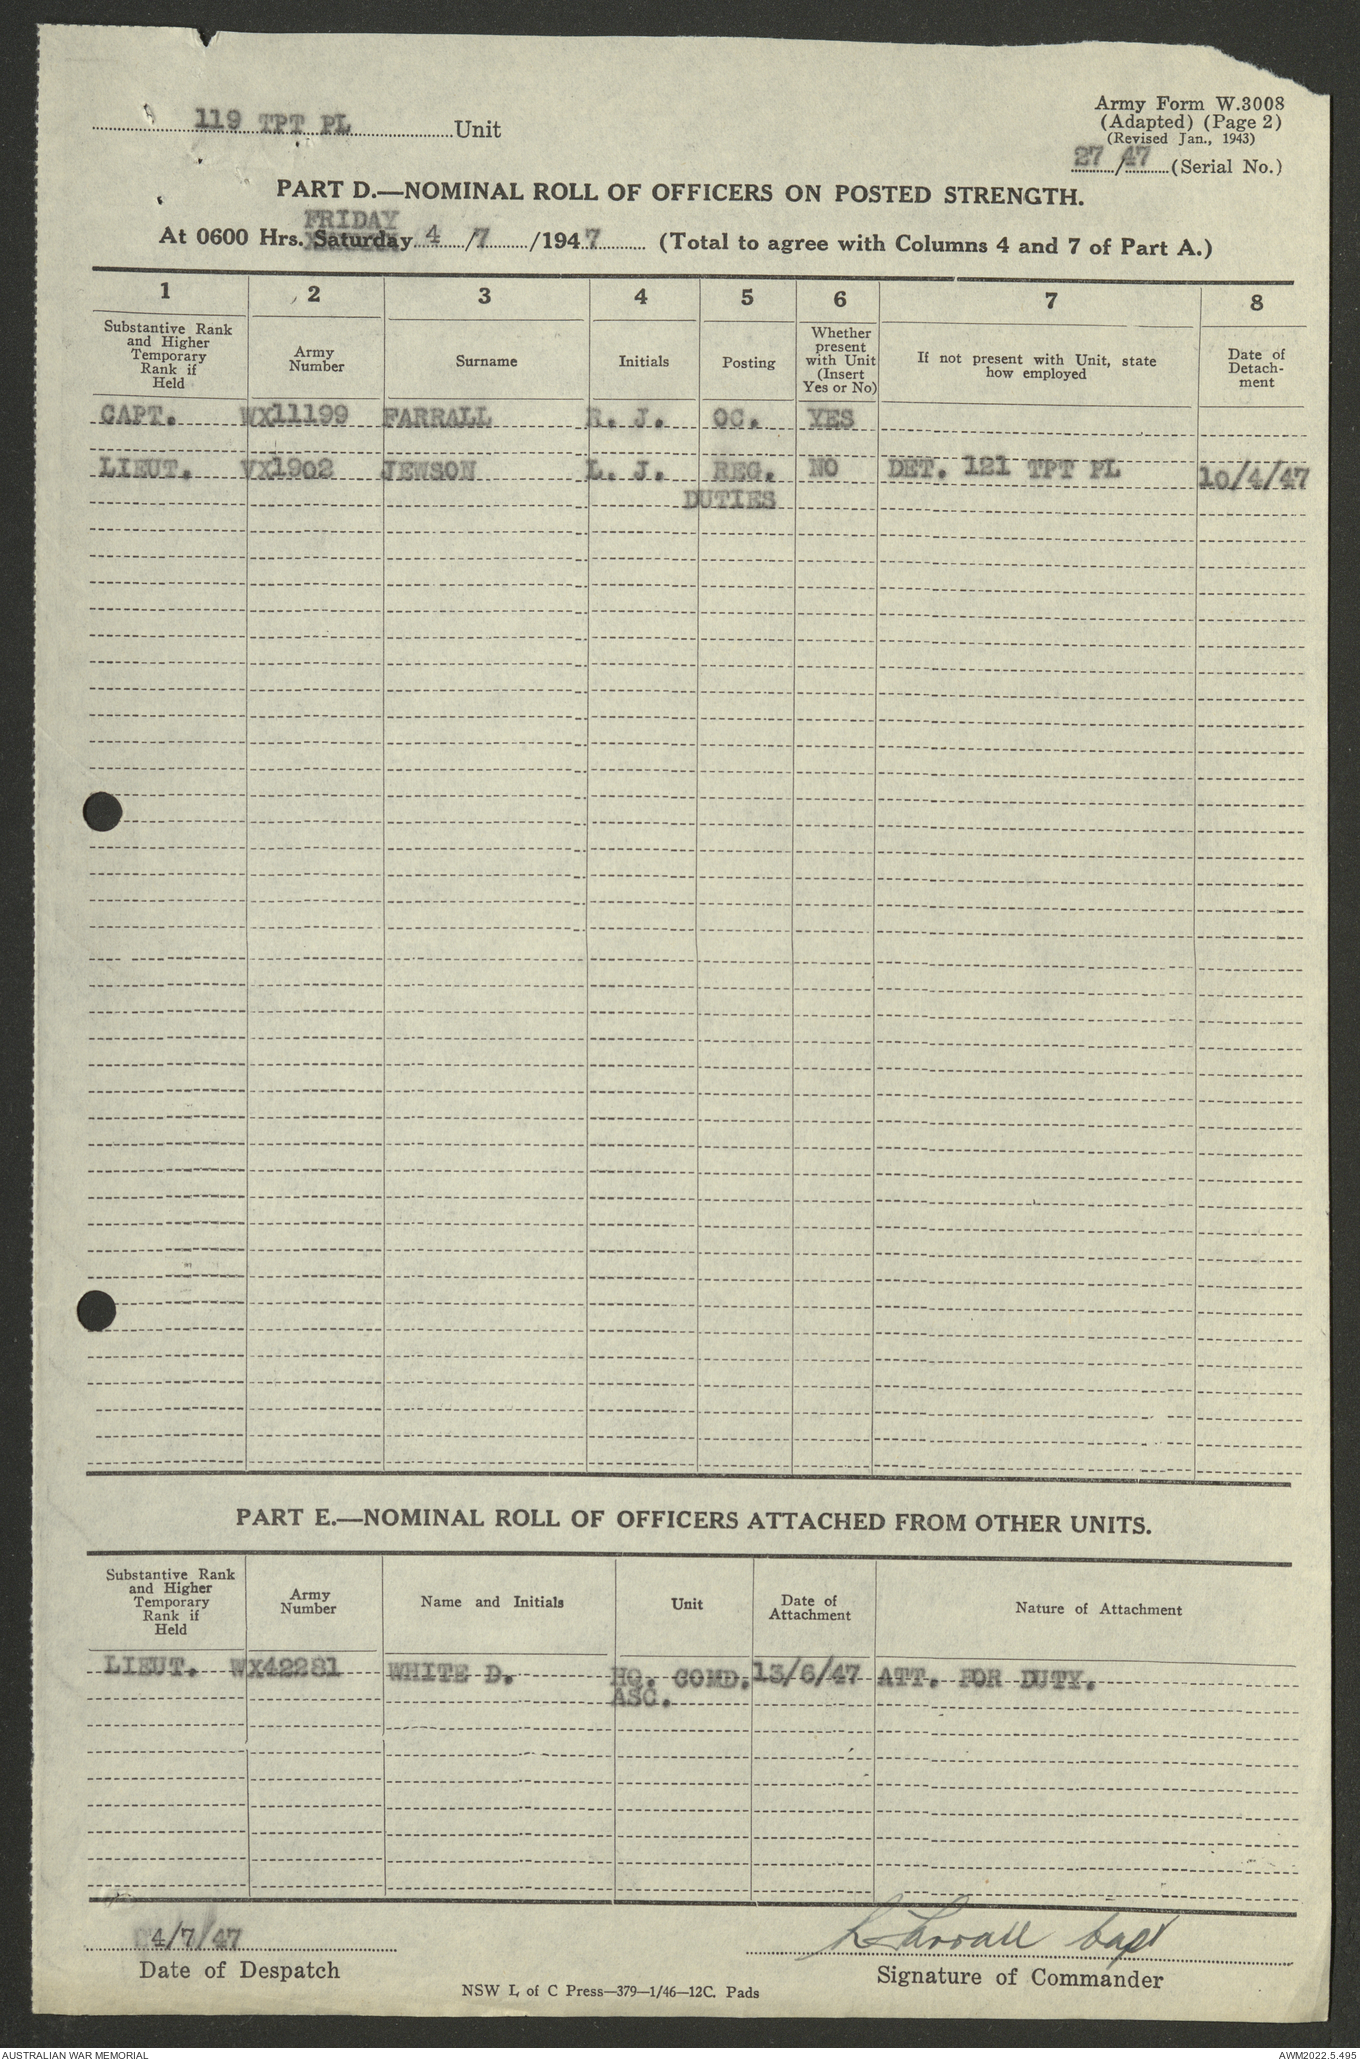 119 TPT PL Unit
Army Form W.3008
(Adapted) (Page 2)
(Revised Jan., 1943)
27/47 (Serial No.)
PART D.—NOMINAL ROLL OF OFFICERS ON POSTED STRENGTH.
FRIDAY
At 0600 Hrs. Saturday 4/7/1947 (Total to agree with Columns 4 and 7 of Part A.)
1 2 3 4 5 6 7 8
Substantive Rank
and Higher
Temporary
Rank if
Held
Army
Number
Surname
Initials
Posting
Whether
present
with Unit
(Insert
Yes or No)
If not present with Unit, state
how employed
Date of
Detach-
ment
CAPT. WX11199 FARRALL R. J. OC. YES
LIEUT. VX1902 JEWSON L. J. REG. NO DET. 121 TPT PL 10/4/47
DUTIES
PART E.—NOMINAL ROLL OF OFFICERS ATTACHED FROM OTHER UNITS.
Substantive Rank
and Higher
Temporary
Rank if
Held
Army
Number
Name and Initials
Unit
Date of
Attachment
Nature of Attachment
LIEUT. WX42281 WHITE D. HQ. COMD. 13/6/47 ATT. FOR DUTY.
ASC.
4/7/47
Date of Despatch
Farrall Capt
Signature of Commander
NSW L of C Press—379—1/46—12C. Pads
AUSTRALIAN WAR MEMORIAL
AWM2022.5.495